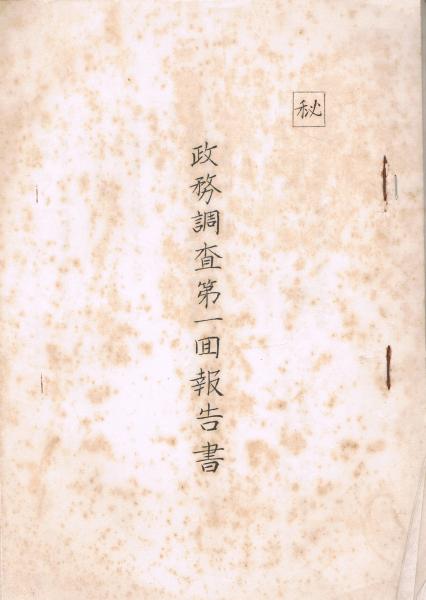 秘
政務調査第一回報告書